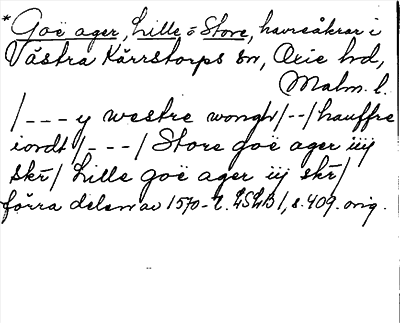 * Goë ager, Lille o Store, havreåkrar i
Västra Kärrstorps sn, Oxie hd,
Malm. l.
/ - - - y westre wongh / - - / hauffre
iordt / - - - / Store goë ager iiij
skr̄ / Lille goë ager iij skr̄ /
förra delen av 1570-t. LSLB 1, s. 409. orig.